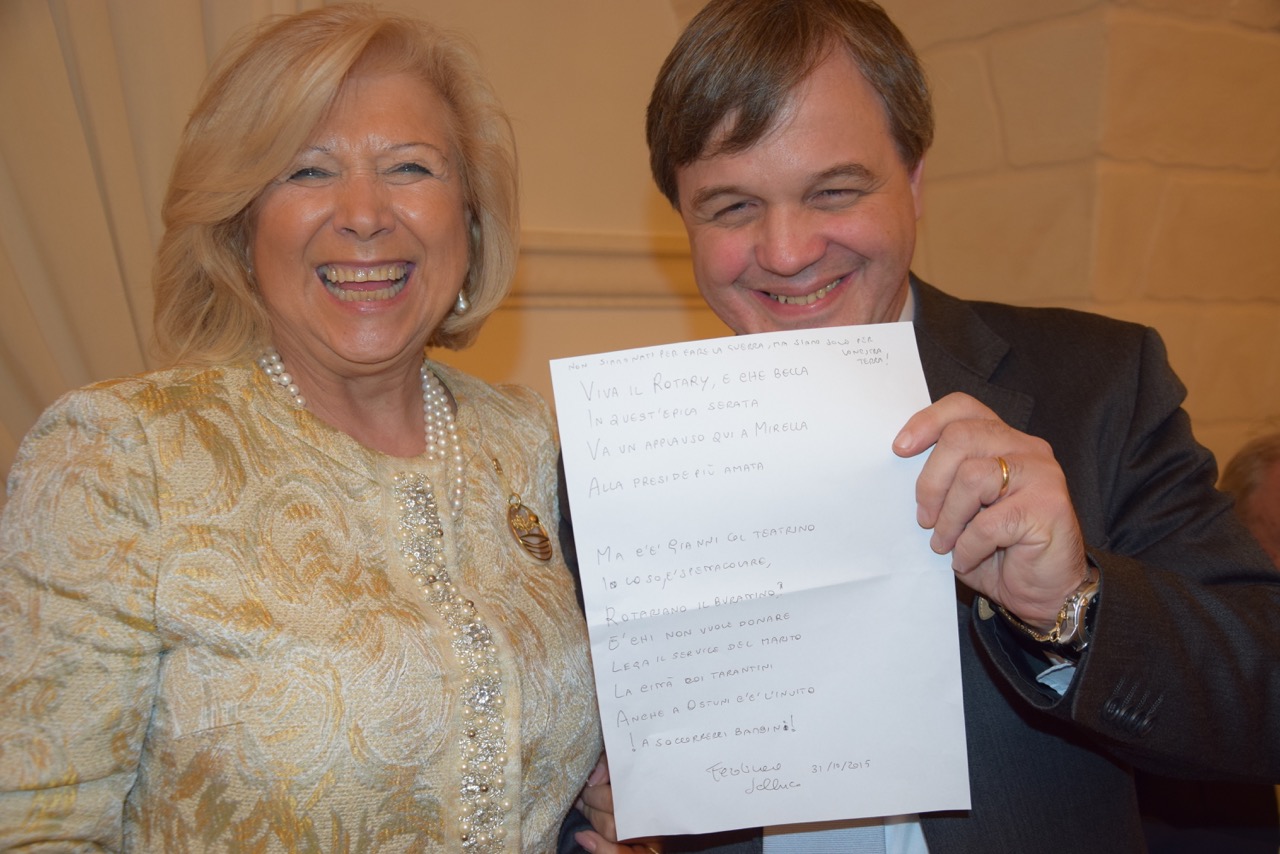 NON SIAMO NATI PER FARE LA GUERRA, MA SIAMO SOLO PER
LA NOSTRA
TERRA!
VIVA IL ROTARY, E CHE BELLA
IN QUEST'EPICA SERATA
VA UN APPLAUSO QUI A MIRELLA
ALLA PRESIDE PIÙ AMATA
MA C'È GIANNI COL TEATRINO
IO LO SO, È SPETTACOLARE,
ROTARIANO IL BURATTINO?
È CHI NON VUOLE DONARE
LEGA IL SERVICE DEL MARITO
LA CITTÀ DEI TARANTINI
ANCHE A OSTUNI C'È L'INVITO
! A SOCCORRERE I BAMBINI!
31/10/2015